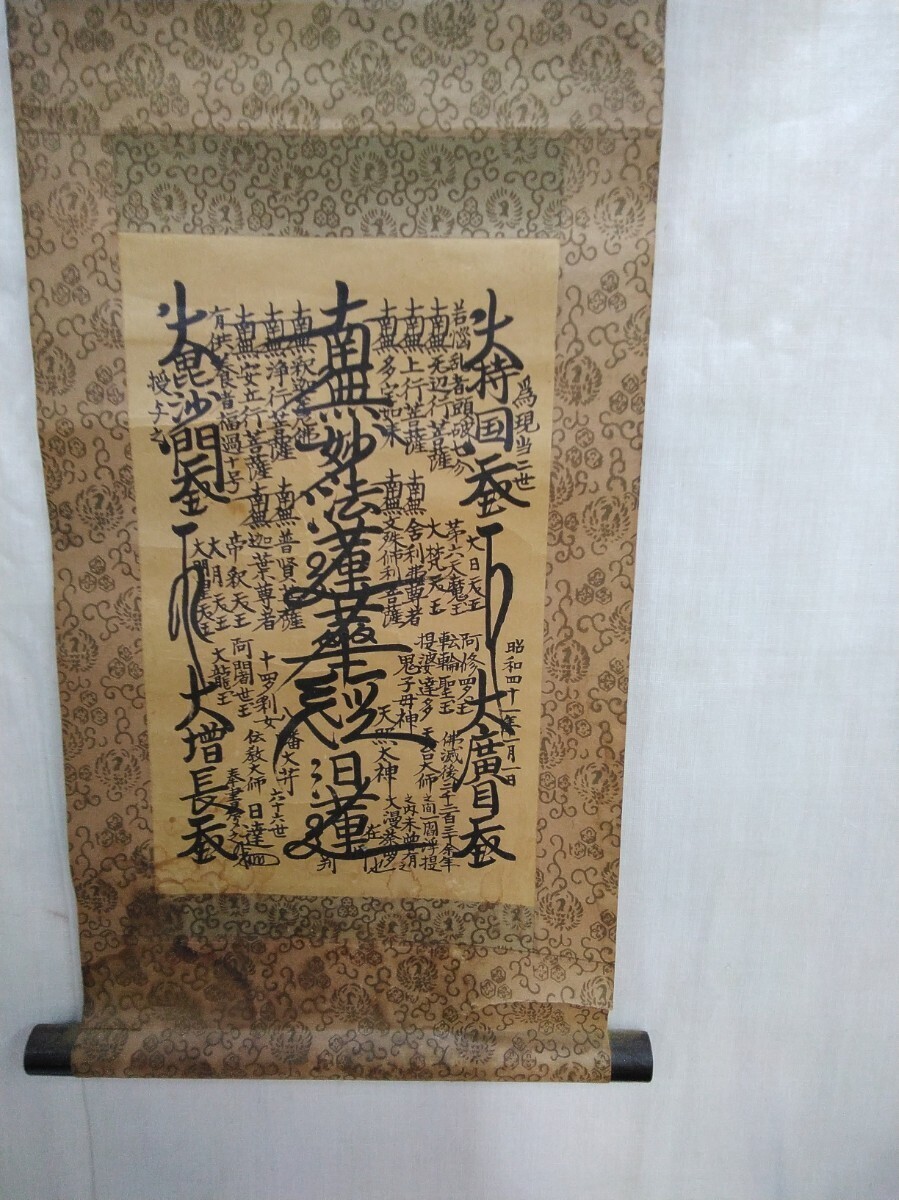 為現当二世
大持国天玉
大廣目天玉
昭和四十一年一月一日
若悩乱者頭破七分
南無无辺行菩薩
南無上行菩薩
南無多宝如来
大日天玉
第六天魔王
大梵天玉
南無舎利弗尊者
南無文殊師利菩薩
阿修罗王
転輪聖王
提婆達多
鬼子母神
天照太神
天台大師
佛滅後二千二百三十余年
之間一閻浮提
之内未曽有之
大漫荼罗也
南無妙法蓮華経
日蓮
在御判
南無釈迦牟尼佛
南無浄行菩薩
南無安立行菩薩
有供養者福過十号
南無普賢菩薩
南無迦葉尊者
帝釈天王
大月天王
大明星天玉
十罗刹女
阿闍世王
大龍王
八幡大菩薩
伝教大師
六十六世
日達
奉書写之
大毘沙門天玉
大増長天玉
授与之